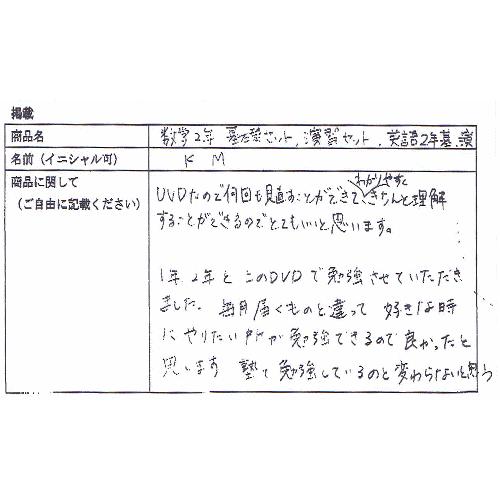 掲載
商品名 数学2年 基礎セット, 演習セット, 英語2年基、演
名前（イニシャル可） K M
商品に関して
（ご自由に記載ください）
わかりやすく
DVDなので何回も見直すことができてきちんと理解
することができるのでとてもいいと思います。
1年 2年と このDVDで勉強させていただき
ました。 毎月届くものと違って 好きな時
に やりたい所が勉強できるので良かったと
思います 塾で勉強しているのと変わらないと思う